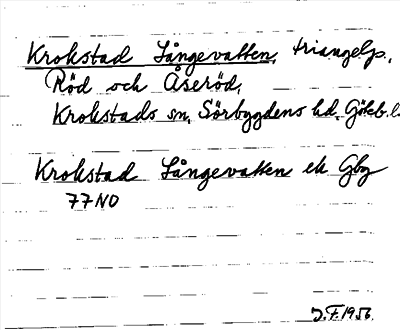 Krokstad Långevatten, triangelp.,
Röd och Åseröd,
Krokstads sn, Sörbygdens hd, Göteb.l.
Krokstad Långevatten ek Gbg
77NO
J.F. 1956.